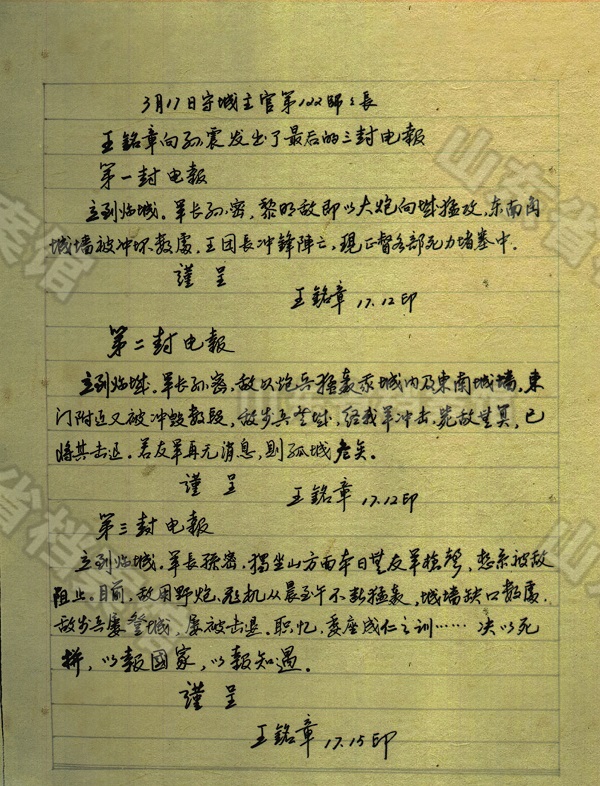 3月17日守城主官第122師々長
王銘章向孙震发出了最后的三封电报
第一封电报
立到临城。军长孙密,黎明敌即以大炮向城猛攻,东南角
城墙被冲坏数處。王团長冲鋒陣亡,現正督各部死力堵塞中。
謹 呈
王銘章 17.12印
第二封电报
立到临城。军长孙密,敌以炮兵猛轰我城内及東南城墙,東
门附近又被冲毁数段,敌步兵登城,经我军冲击,
已
将其击退。若友军再无消息,则孤城危矣。
謹 呈
王銘章 17.12印
第三封电报
立到临城。军長孫密。獨坐山方面本日無友军槍聲,想系被敌
阻止。目前,敌用野炮、飛机从晨至午不断猛轰,城墙缺口数處,
敌步兵屡登城,屡被击退。职忆,委座成仁之训……决以死
拼,以報國家,以報知遇。
謹 呈
王銘章 17.15印
山东省
案馆
省档案
山东